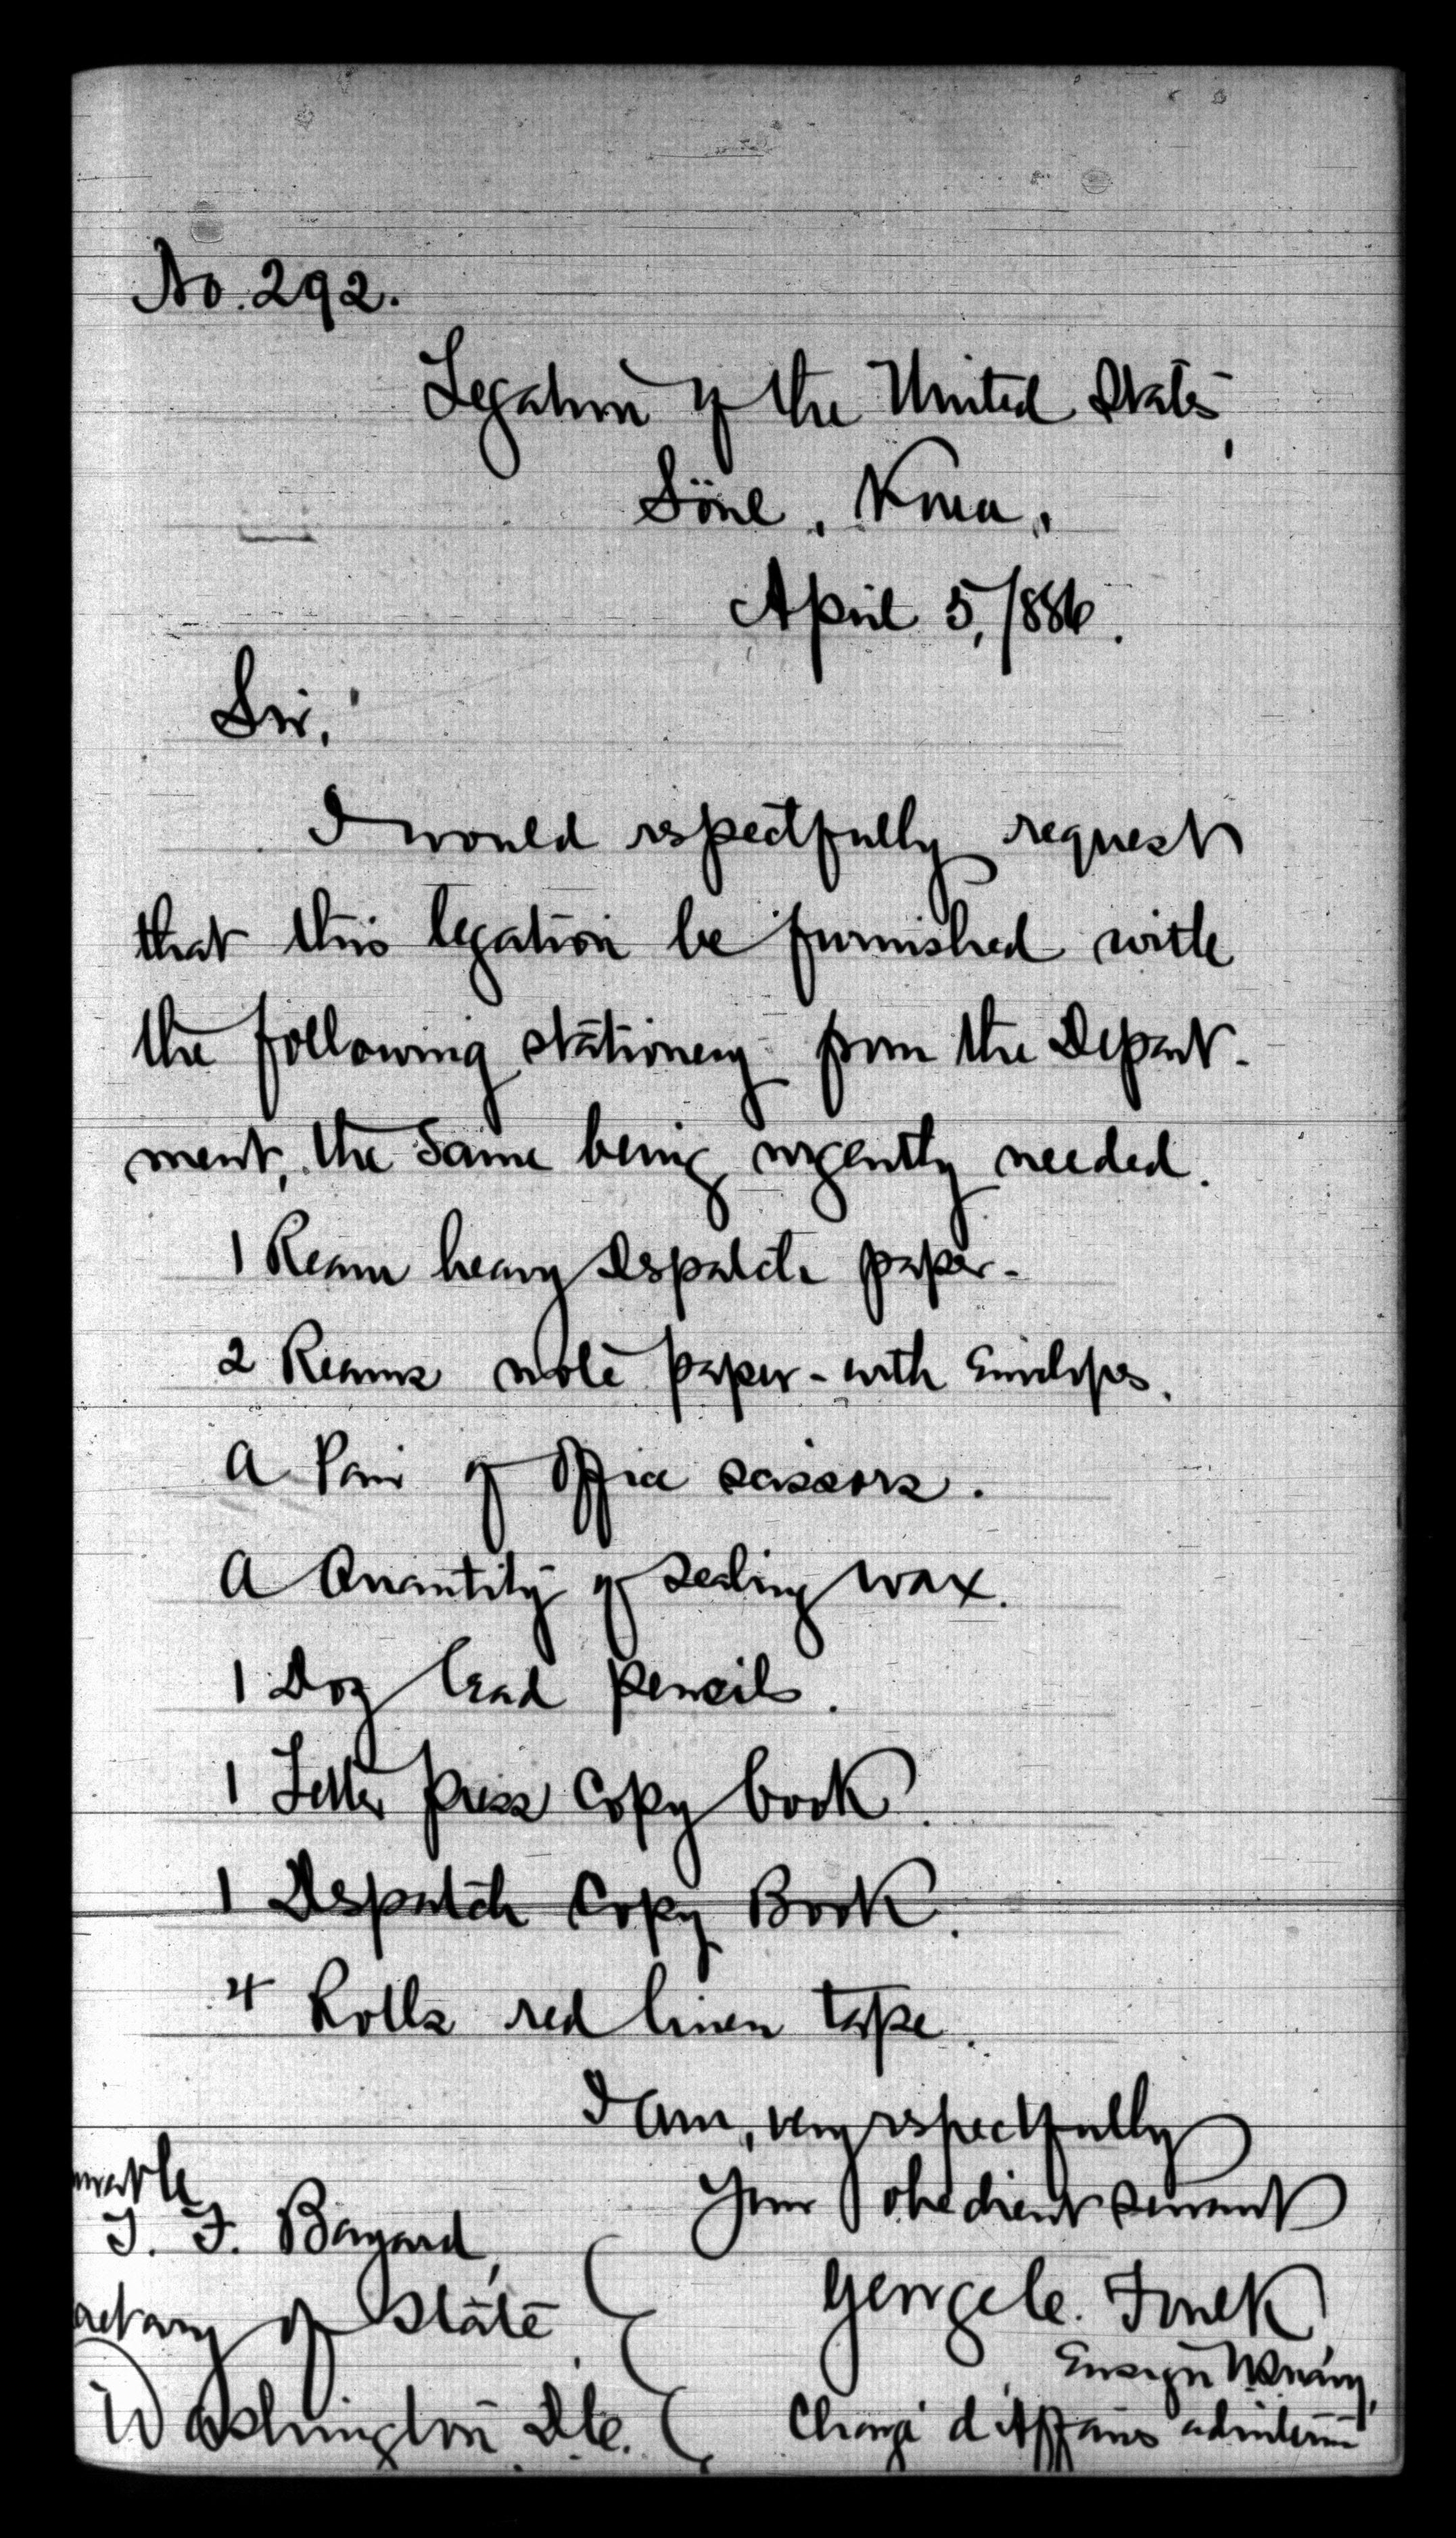 No. 292.
Legation of the United States,
Söul, Korea,
April 5, 1886.
Sir,
I would respectfully request
that this legation be furnished with
the following stationery from the Depart-
ment, the same being urgently needed.
1 Ream heavy Despatch paper-
2 Reams note paper - with Envelopes.
A Pair of Office scissors.
A Quantity of Sealing wax.
1 Doz lead pencils.
1 Letter Press Copy book.
1 Despatch Copy Book.
4 Rolls red linen tape.
I am, very respectfully
Your obedient servant
George C. Foulk
Ensign U.S. Navy,
Chargé d'Affaires ad interim
orable
T. F. Bayard,
retary of State
Washington D.C.